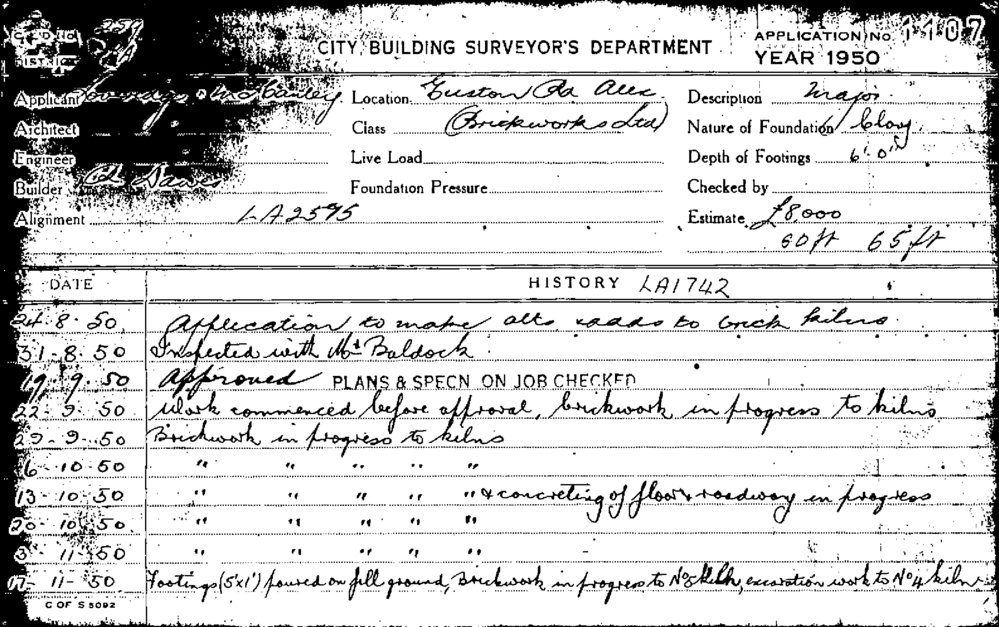 259
CITY BUILDING SURVEYOR'S DEPARTMENT
APPLICATION No. 1107
YEAR 1950
Applicant McCauley. Location Euston Rd Alex. Description Major
Architect Class (Brickworks Ltd) Nature of Foundation Clay
Engineer Live Load Depth of Footings 6'.0"
Builder Foundation Pressure Checked by
Alignment LA2595 Estimate £8,000
60ft 65ft
DATE HISTORY LA1742
24.8.50 Application to make alts & adds to brick kilns.
31-8.50 Inspected with Mr Baldock.
19.9.50 Approved PLANS & SPECN ON JOB CHECKED
22-9.50 Work commenced before approval, brickwork in progress to kilns
29-9-50 Brickwork in progress to kilns
6-10-50 " " " " "
13-10-50 " " " " " & concreting of floor & roadway in progress
20-10-50 " " " " "
3-11-50 " " " " "
17-11-50 Footings (5'x1') poured on fill ground, Brickwork in progress to No 3 kiln, excavation work to No 4 kiln
C OF S 5092